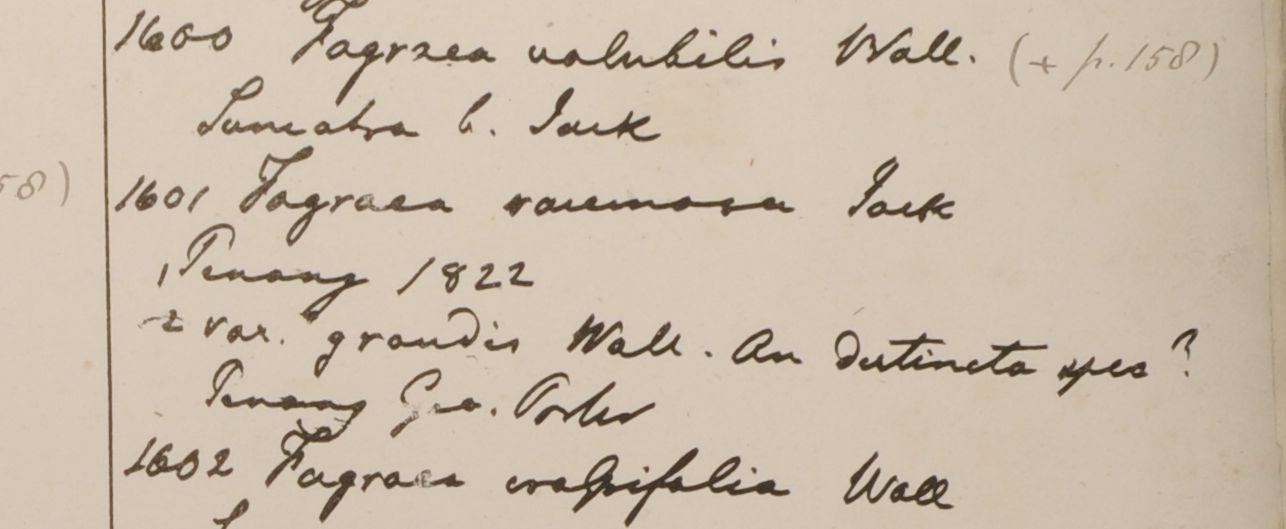 1600 Fagraea volubilis Wall. (+ p. 158)
Sumatra b. Jack
58)
1601 Fagraea racemosa Jack
1 Penang 1822
2 var. grandis Wall. An distincta spec?
Penang Geo. Porter
1602 Fagraea Wall